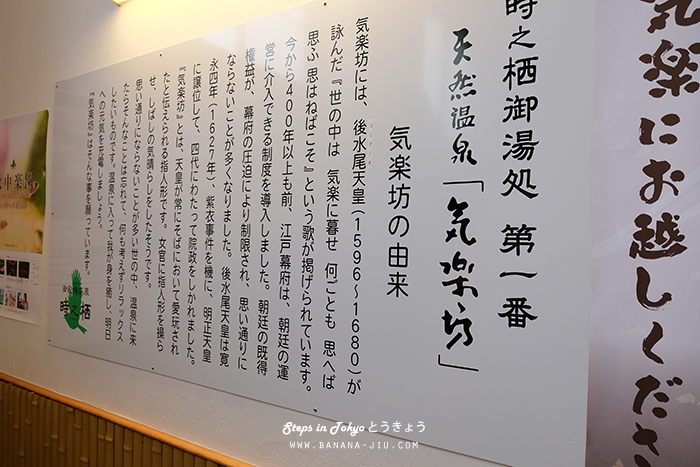 気楽にお越しくださ
時之栖御湯処 第一番
天然温泉「気楽坊」
気楽坊の由来
気楽坊には、後水尾天皇(1596～1680)が
詠んだ『世の中は 気楽に暮せ 何ごとも 思へば
思ふ 思はねばこそ』という歌が掲げられています。
今から400年以上も前、江戸幕府は、朝廷の運
営に介入できる制度を導入しました。朝廷の既得
権益が、幕府の圧迫により制限され、思い通りに
ならないことが多くなりました。後水尾天皇は寛
永四年(1627年)、紫衣事件を機に、明正天皇
に譲位して、四代にわたって院政をしかれました。
『気楽坊』とは、天皇が常にそばにおいて愛玩され
たと伝えられる指人形です。女官に指人形を操ら
せ、しばしの気晴らしをしたそうです。
思い通りにならないことが多い世の中、温泉に来
たらそんなことは忘れて、何も考えずリラックス
したいものです。温泉に入って我が身を癒し、明日
への元気を充電しましょう。
『気楽坊』はそんな事を願っています。
時之栖
中楽園
Steps in Tokyo とうきょう
WWW.BANANA-JIU.COM